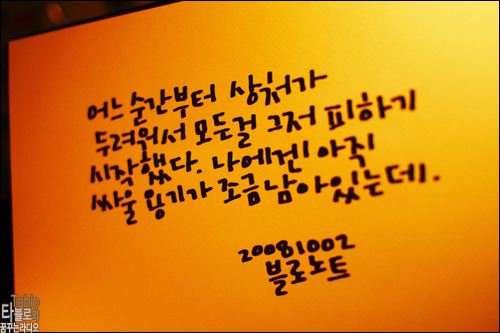 어느 순간부터 상처가
두려워서 모든걸 그저 피하기
시작했다. 나에겐 아직
싸울 용기가 조금 남아있는데.
20081002
블로노트
Tablo
타블로와
꿈꾸는라디오